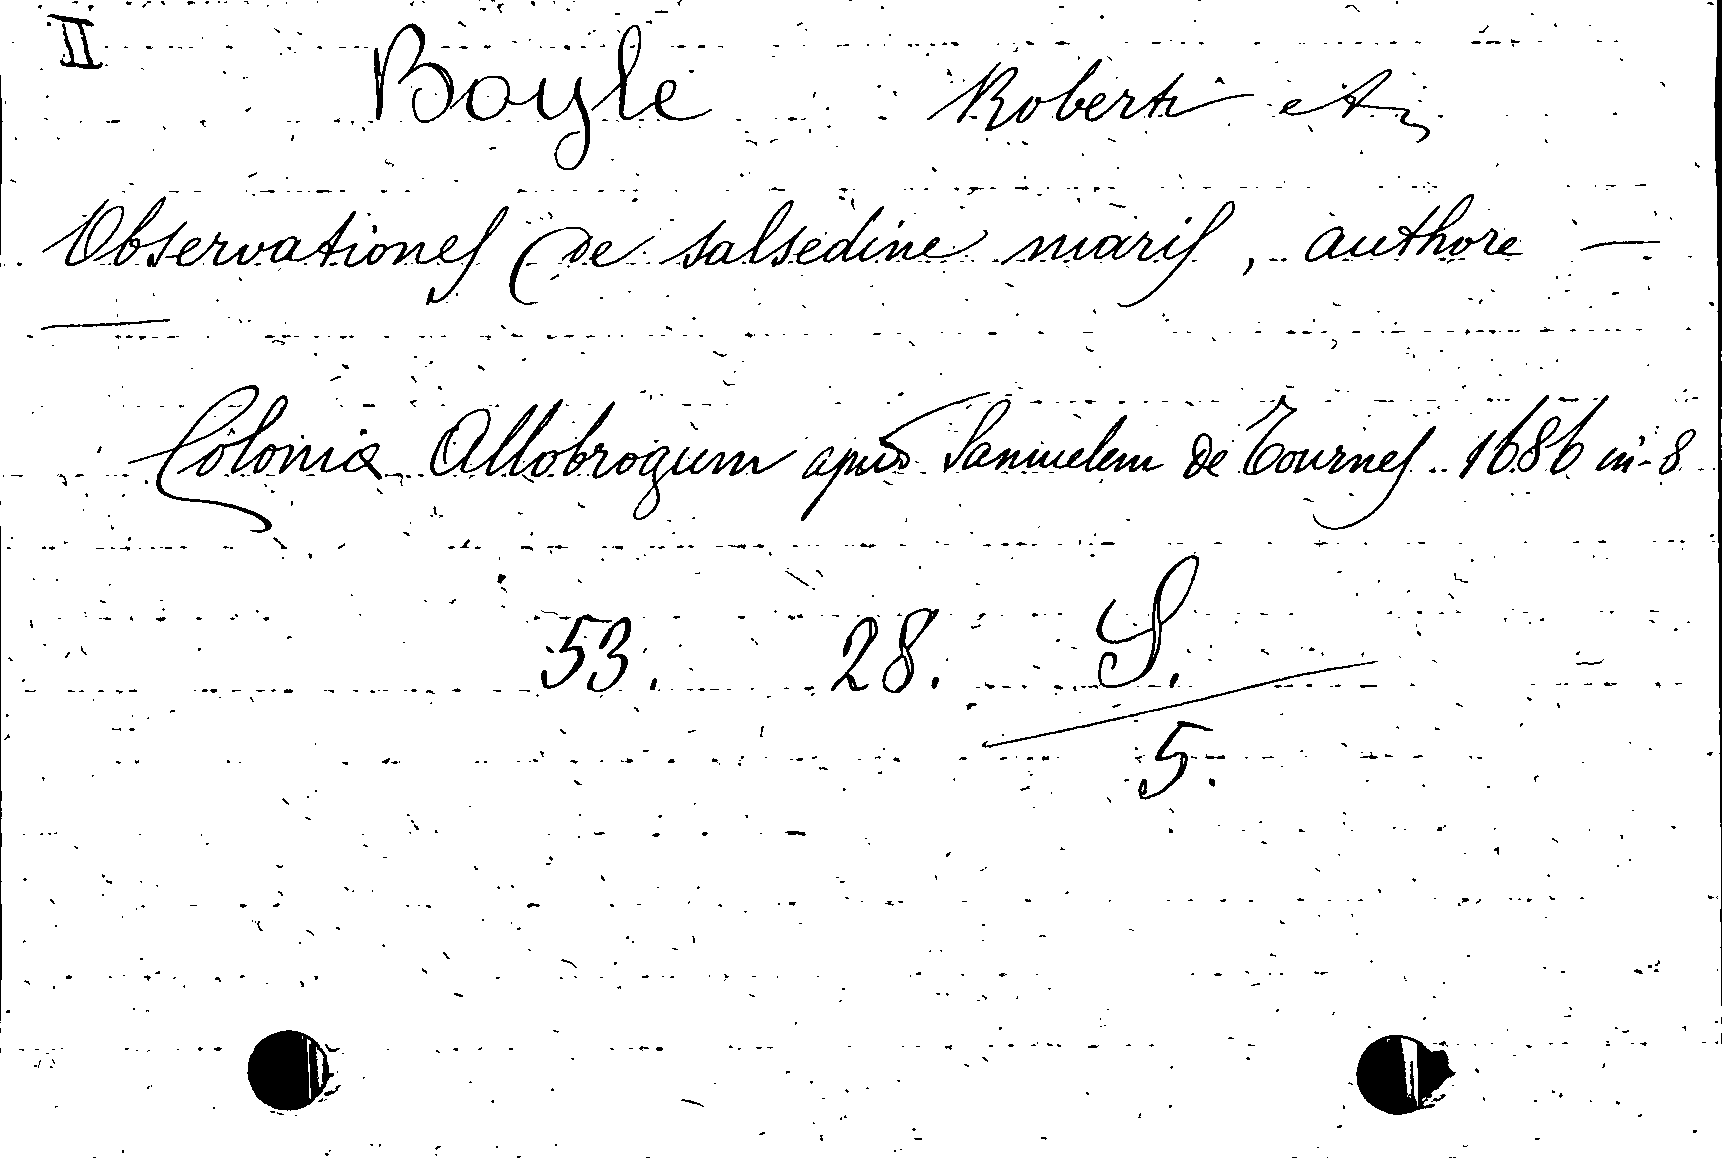 II
Boyle Roberti
Observationes de salsedine maris, authore —
—
Coloniæ Allobrogum apud Samuelem de Tournes. 1686 in-8
53. 28. S.
5.